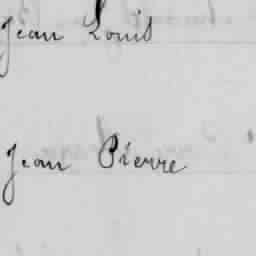 Jean Louis
Jean Pierre